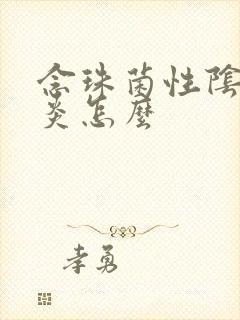 念珠菌性陰
炎怎麼
李勇